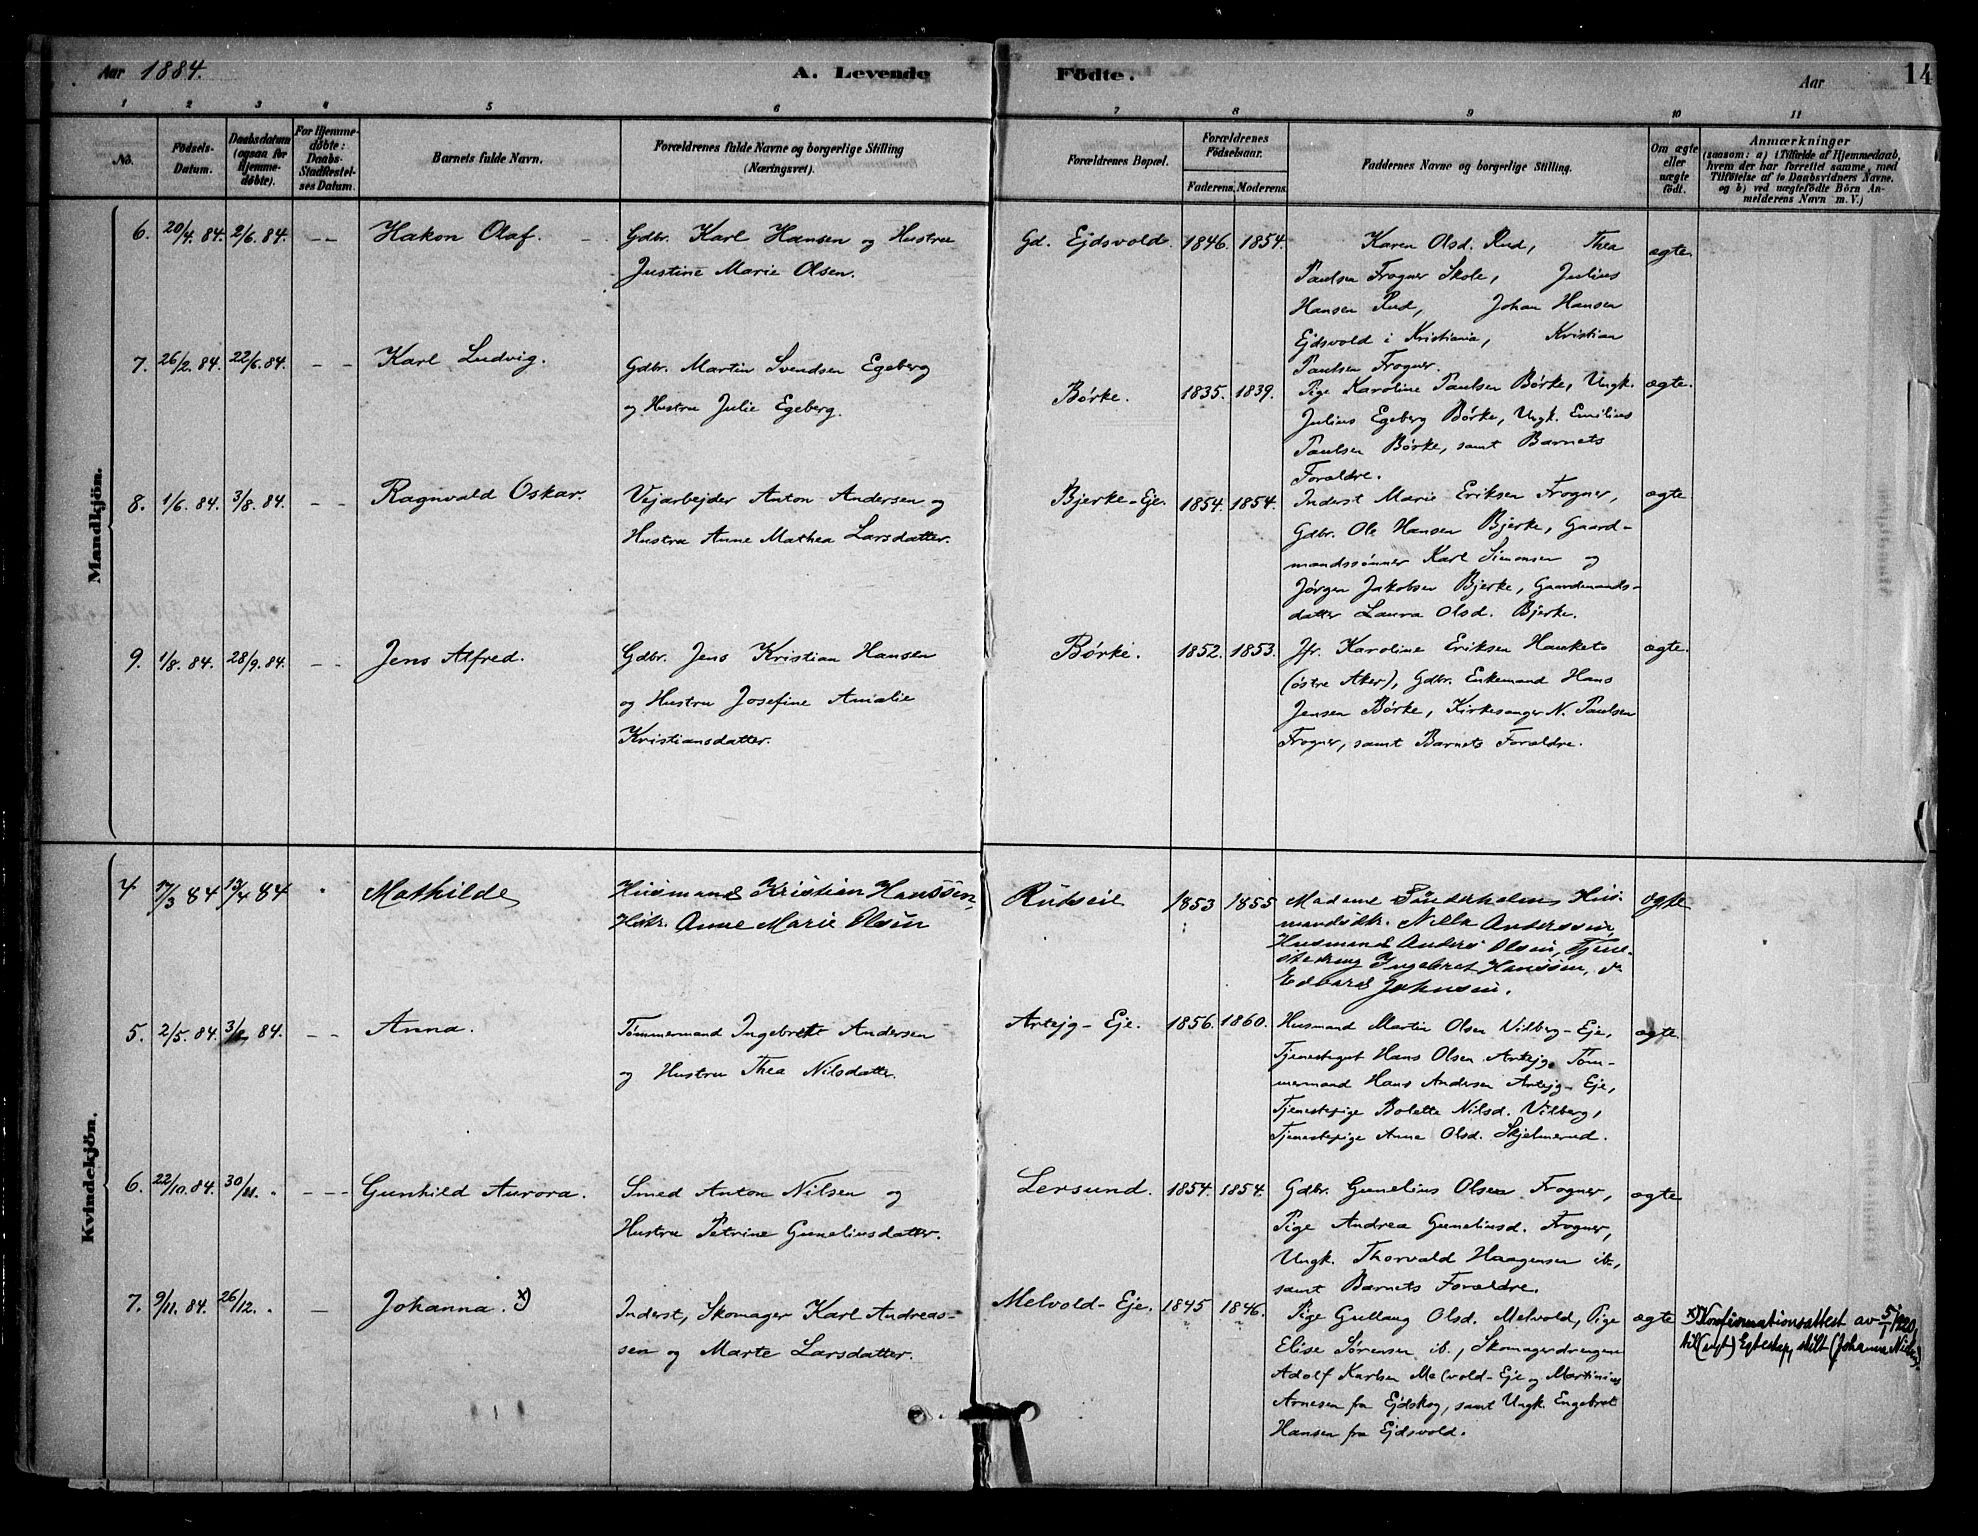 Aar 1884. A. Levende Födte. Aar 14
1 2 3 4 5 6 7 8 9 10 11
No.
Födsels-Datum.
Daabsdatum (ogsaa for Hjemme-døbte).
For Hjemme-døbte: Daabs-Stadfæstel-ses Datum.
Barnets fulde Navn.
Forældrenes fulde Navne og borgerlige Stilling (Næringsvei).
Forældrenes Bopæl.
Forældrenes Födselsaar.
Faderens. Moderens.
Faddernes Navne og borgerlige Stilling.
Om ægte eller uægte födt.
Anmærkninger
(saasom: a) i Tilfælde af Hjemmedaab, hvem der har forrettet samme, med Tilføielse af to Daabsvidners Navne. og b) ved uægtefödte Börn An-melderens Navn m. V.)
Mandkjön.
6. 20/4. 84. 2/6. 84. -- Hakon Olaf. Gdbr. Karl Hansen og Hustru
Justine Marie Olsen.
Gd. Ejdsvold. 1846. 1854. Karen Olsd. Rud, Thea
Paulsen Frogner Skole, Julius
Hansen Rud, Johan Hansen
Ejdsvold i Kristiania, Kristian
Paulsen Frogner.
ægte.
7. 26/2. 84. 22/6. 84. -- Karl Ludvig. Gdbr. Martin Svendsen Egeberg
og Hustru Julie Egeberg.
Børke. 1835. 1839. Pige Karoline Paulsen Børke, Ungk.
Julius Egeberg Børke, Ungk. Emilius
Paulsen Børke, samt Barnets
Forældre.
ægte.
8. 1/6. 84. 3/8. 84. -- Ragnvald Oskar. Vejarbejder Anton Andersen og
Hustru Anne Mathea Larsdatter.
Bjerke-Eje. 1854. 1854. Inderst Marie Eriksen Frogner,
Gdbr. Ole Hansen Bjerke, Gaard-
mandssønner Karl Simonsen og
Jørgen Jakobsen Bjerke, Gaardmands-
datter Laura Olsd. Bjerke.
ægte
9. 1/8. 84. 28/9. 84. -- Jens Alfred. Gdbr. Jens Kristian Hansen
og Hustru Josefine Amalie
Kristiansdatter.
Børke. 1852. 1853. Jfr. Karoline Eriksen Hauketo
(østre Aker), Gdbr. Enkemand Hans
Jensen Børke, Kirkesanger N. Paulsen
Frogner, samt Barnets Forældre.
ægte.
Kvindekjön.
4 17/3 84 13/4 84 Mathilde Husmand Kristian Hanssen,
Hstr. Anne Marie Olsen
Rudseie 1853 1855 Madame Sönderholm, Hus-
mandsdtr. Nille Anderssen,
Husmand Anders Olsen, Tjene-
stedreng Ingebret Hanssen,
Edvard Johnsen.
ægte
5. 2/5. 84. 3/8 84. -- Anna. Tømmermand Ingebret Andersen
og Hustru Thea Nilsdatter.
Artejg-Eje. 1856. 1860. Husmand Martin Olsen Vilberg-Eje,
Tjenestegut Hans Olsen Artejg, Tøm-
mermand Hans Andersen Artejg-Eje,
Tjenestepige Bolette Nilsd. Vilberg,
Tjenestepige Anne Olsd. Skjelmerud.
ægte.
6. 22/10. 84. 30/11. " --- Gunhild Aurora. Smed Anton Nilsen og
Hustru Petrine Guneliusdatter.
Lersund. 1854. 1854. Gdbr. Gunelius Olsen Frogner,
Pige Andrea Guneliusd. Frogner,
Ungk. Thorvald Haagensen ib.,
samt Barnets Forældre.
ægte
7. 9/11. 84. 26/12. " - Johanna. x) Inderst, Skomager Karl Andreas-
sen og Marte Larsdatter.
Melvold-Eje. 1845 1846. Pige Gullaug Olsd. Melvold, Pige
Elise Sørensen ib., Skomagerdrengene
Adolf Karlsen Melvold-Eje og Martinius
Arnesen fra Ejdskog, samt Ungk. Engebret
Hansen fra Ejdsvold.
ægte
x) Konfirmationsattest av 5/1 1920,
til (nyt) Egteskap, stilt (Johanne